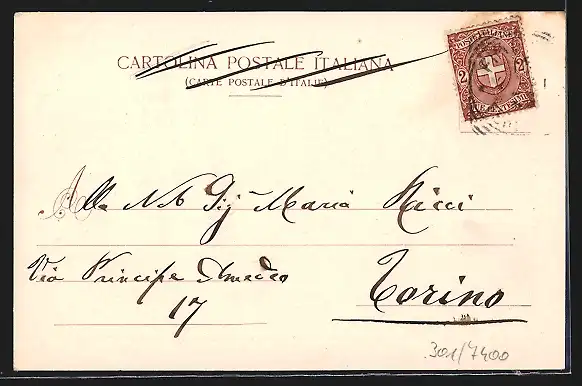 CARTOLINA POSTALE ITALIANA
(CARTE POSTALE D'ITALIE)
POSTE ITALIANE
2 2
DUE CENTESIMI
Alla N. D. Sig.ª Maria Ricci
Via Principe Amedeo
17
Torino
301/7400